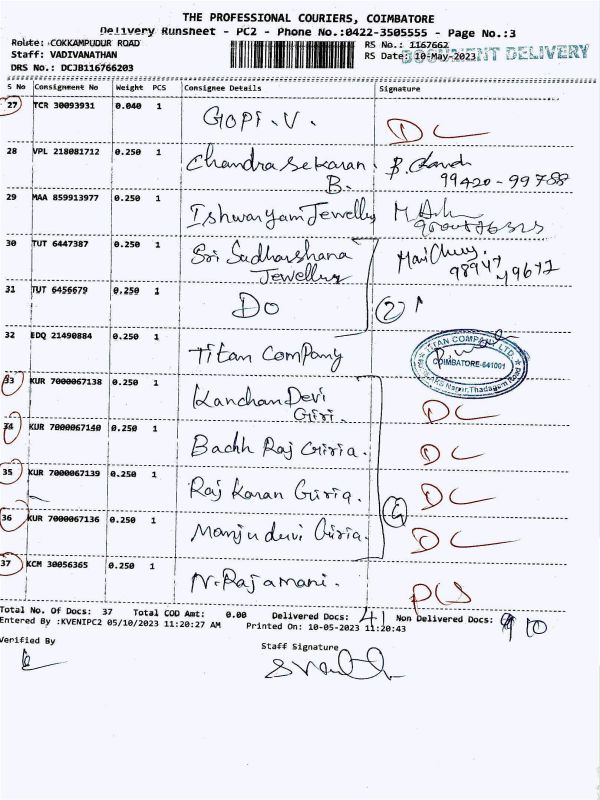 THE PROFESSIONAL COURIERS, COIMBATORE
Delivery Runsheet - PC2 - Phone No.:0422-3505555 - Page No.:3
Route: COKKAMPUDUR ROAD RS No.: 1167662
Staff: VADIVANATHAN RS Date: 10-May-2023
DOCUMENT DELIVERY
DRS No.: DCJB116766203
S No Consignment No Weight PCS Consignee Details Signature
27 TCR 30093931 0.040 1 GOPI.V. DC
28 VPL 218081712 0.250 1 Chandrasekaran. B. Chandi
B. 99420-99788
29 MAA 859913977 0.250 1 Ishwaryam Jewellys
30 TUT 6447387 0.250 1 Sri Sudharshana
Jewellery 98947 49672
31 TUT 6456679 0.250 1 DO 2
32 EDQ 21490884 0.250 1 Titan Company
TITAN COMPANY LTD.
COIMBATORE-641001
33 KUR 7000067138 0.250 1 Kanchan Devi
Giri. DC
34 KUR 7000067140 0.250 1 Bachh Raj Giria. DC
35 KUR 7000067139 0.250 1 Raj Karan Giria. DC
4
36 KUR 7000067136 0.250 1 Manju devi Giria. DC
37 KCM 30056365 0.250 1 N.Rajamani.
Total No. Of Docs: 37 Total COD Amt: 0.00 Delivered Docs: Non Delivered Docs: 10
Entered By :KVENIPC2 05/10/2023 11:20:27 AM Printed On: 10-05-2023 11:20:43
Verified By Staff Signature